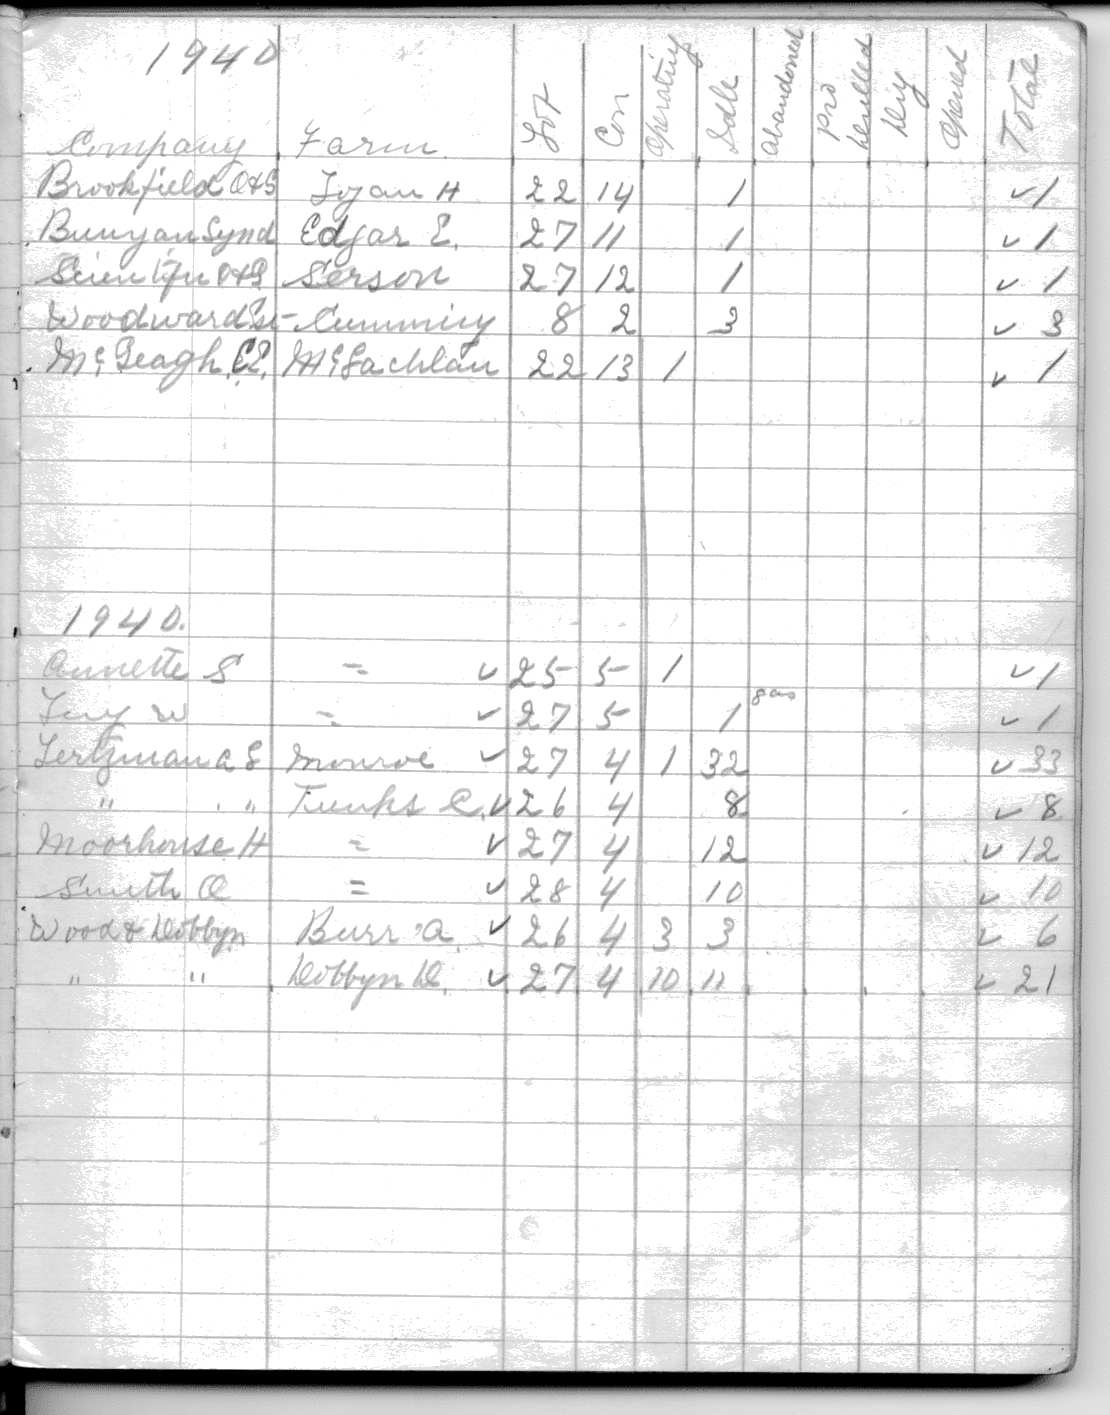 1940
Company Farm Lot Con Operating Idle Abandoned Pro Drilled Dry Opened Total
Brookfield O&G H 22 14 1 ✓ 1
Bunyan Synd Edgar E. 27 11 1 ✓ 1
O&G Serson 27 12 1 ✓ 1
Woodward 8 2 3 ✓ 3
McGeagh, C.E. McLachlan 22 13 1 ✓ 1
1940.
Annette S = ✓ 25 5 1 ✓ 1
W = ✓ 27 5 1 gas ✓ 1
Lertzman C S Monroe ✓ 27 4 1 32 ✓ 33
" " Funks C. ✓ 26 4 8 ✓ 8
Moorhouse H = ✓ 27 4 12 ✓ 12
Smith O = ✓ 28 4 10 ✓ 10
Wood & Dobbyn Burr A. ✓ 26 4 3 3 ✓ 6
" " Dobbyn D. ✓ 27 4 10 11 ✓ 21